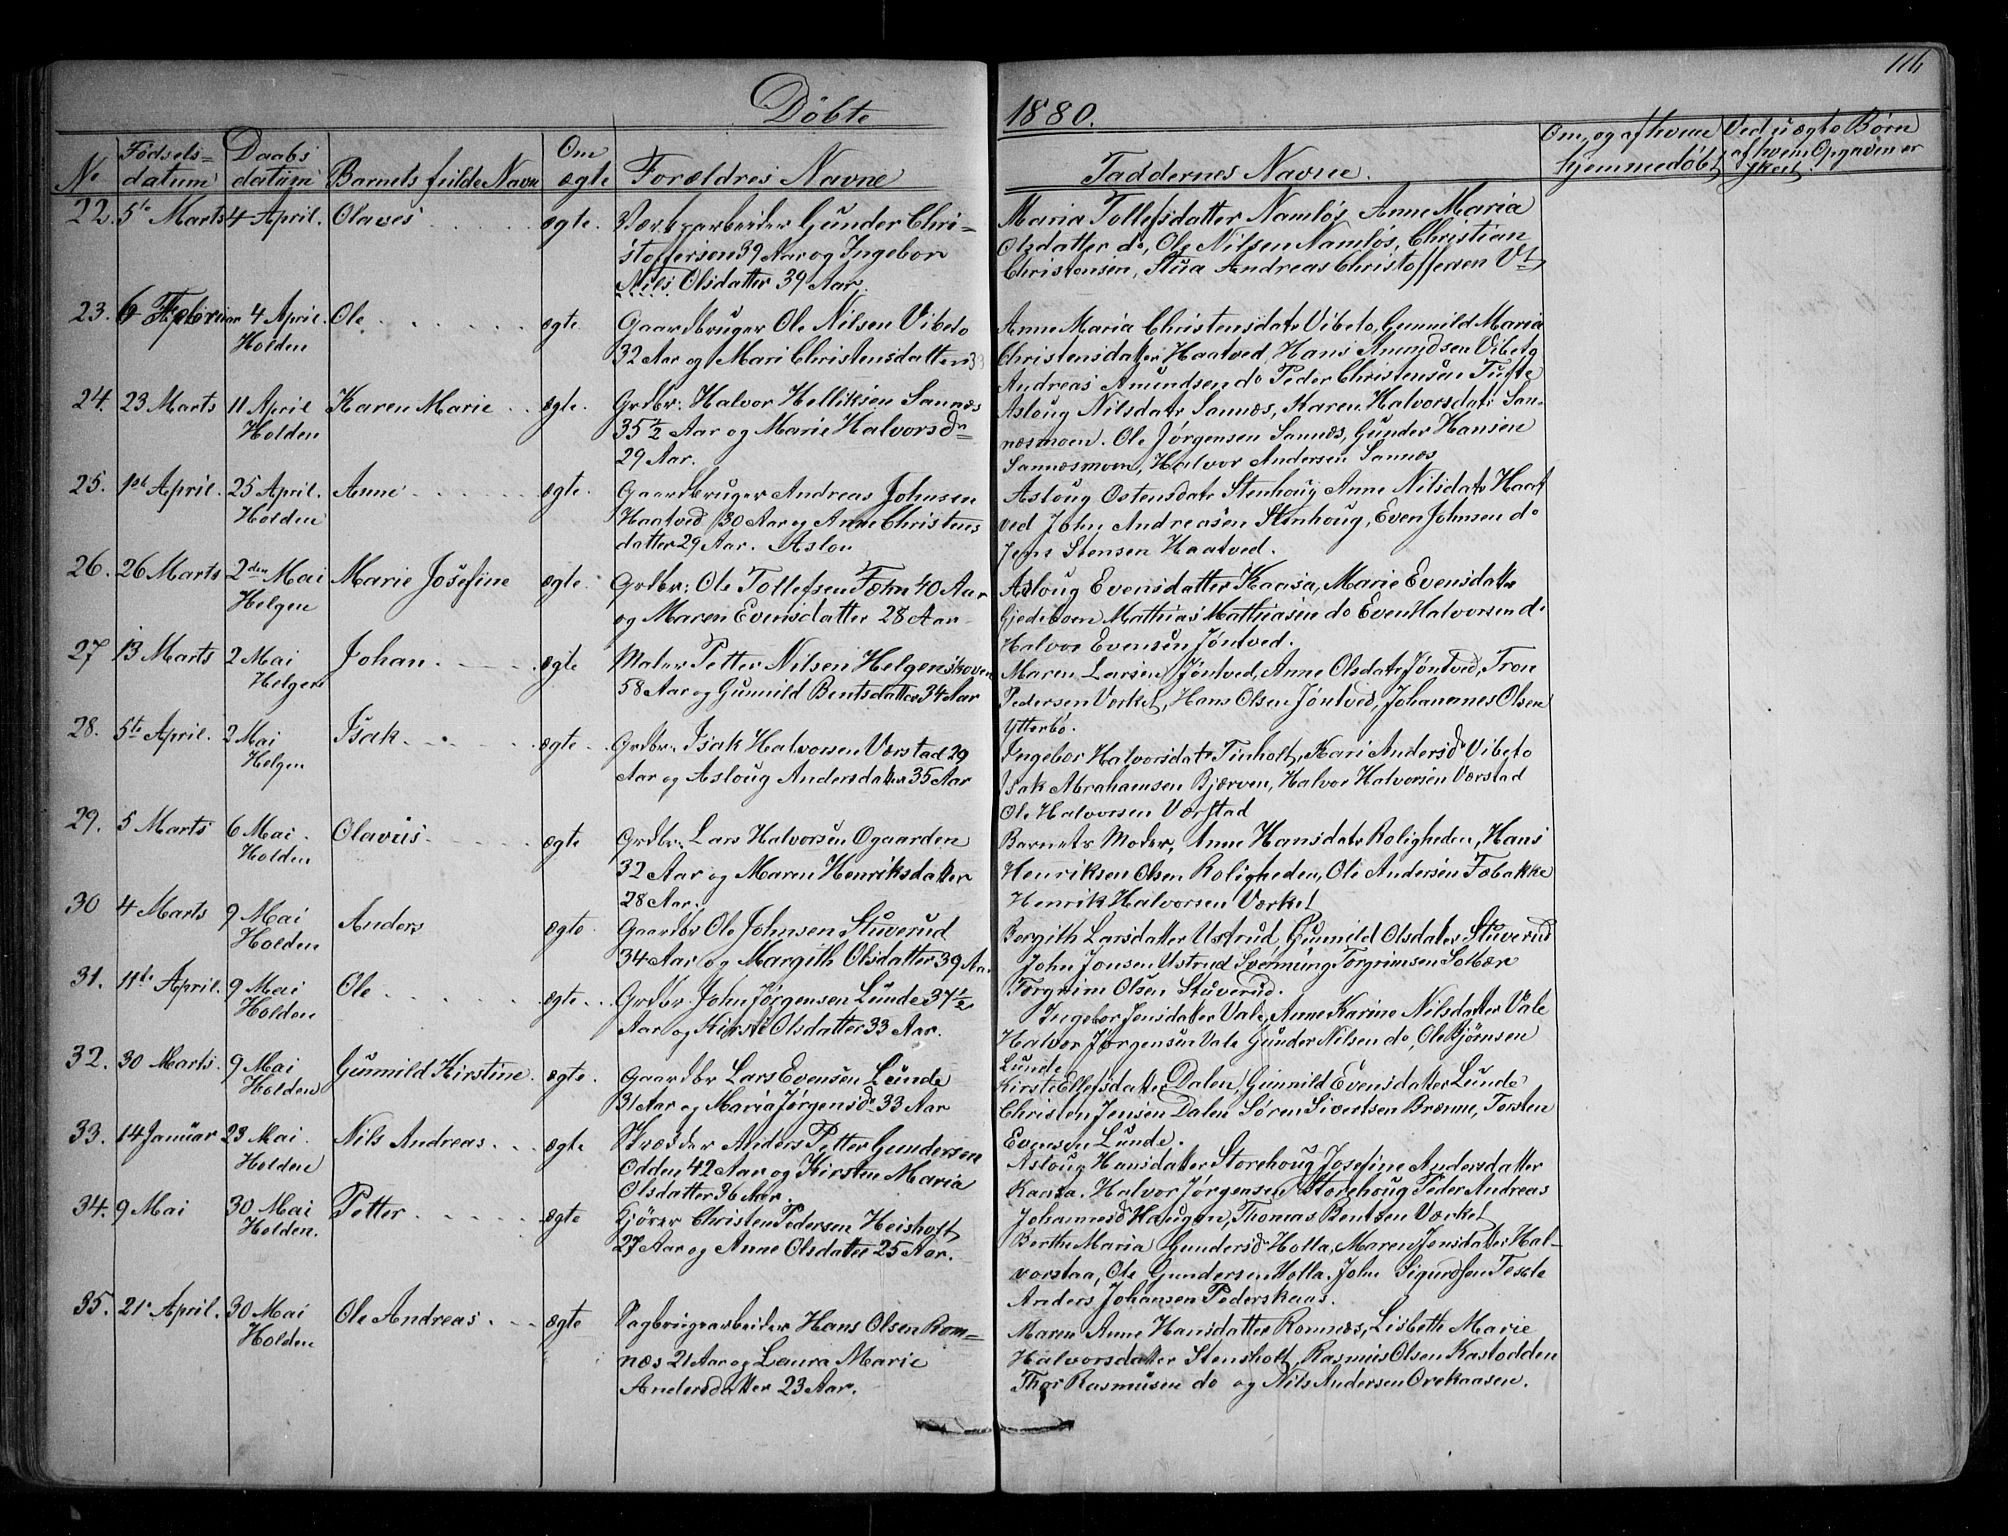 116
Döbte 1880.
No Födsels- datum Daabs datum Barnets fulde Navn Om ægte Forældres Navne Faddernes Navne. Om, og af hvem hjemmedöbt Ved uægte Børn af hvem Opgaven er skeet
22. 5te Marts 4 April. Olaves ægte. Værksarbeider Gunder Chri-
stoffersen 39 Aar og Ingebor
Nils Olsdatter 39 Aar.
Maria Tollefsdatter Namløs Anne Maria
Olsdatter do, Ole Nilsen Namløs, Christian
Christensen, Stua Andreas Christoffersen
23. 6 Februar 4 April. Holden Ole ægte Gaardbruger Ole Nilsen Vibeto
32 Aar og Mari Christensdatter 33
Anne Maria Christensdatr Vibeto, Gunnild Maria
Christensdatter Haatved, Hans Amundsen Vibeto
Andreas Amundsen do Peder Christensen Tufte
24. 23 Marts 11 April Holden Karen Marie ægte. Grdbr: Halvor Helliksen Sannæs
35 1/2 Aar og Marie Halvorsdr
29 Aar.
Asloug Nilsdatr Sannæs, Karen Halvorsdatr San-
næsmoen. Ole Jørgensen Sannæs, Gunder Hansen
Sannæsmoen, Halvor Andersen Sannæs
25. 1ste April. 25 April. Holden Anne ægte. Gaardbruger Andreas Johnsen
Haatved 30 Aar og Anne Christens
datter 29 Aar. Aslou
Asloug Ostensdatr Stenhoug Anne Nilsdatr Haat
ved John Andreasen Stenhoug, Even Johnsen do
Jens Stensen Haatved.
26. 26 Marts 2den Mai Helgen Marie Josefine ægte. Grdbr: Ole Tollefsen Fæhn 40 Aar
og Maren Evensdatter 28 Aar
Asloug Evensdatter Kaasa, Marie Evensdatter
Gjedeboen Mathias Mathiasen do Even Halvorsen do
Halvor Evensen Jøntved.
27 13 Marts 2 Mai Helgen Johan ægte Maler Petter Nilsen Helgenskoven
58 Aar og Gunnild Bentsdatter 34 Aar
Maren Larsen Jøntved, Anne Olsdatr Jøntved, Tron
Pedersen Værket, Hans Olsen Jøntved, Johannes Olsen
Ytterbø.
28. 5te April. 2 Mai Helgen Isak ægte Grdbr: Isak Halvorsen Værstad 29
Aar og Asloug Andersdatter 35 Aar
Ingebor Halvorsdatr Tinholt, Kari Andersdr Vibeto
Isak Abrahamsen Bjerven, Halvor Halvorsen Værstad
Ole Halvorsen Værstad
29. 5 Marts 6 Mai. Holden Olavus ægte Grdbr: Lars Halvorsen Ogaarden
32 Aar og Maren Henriksdatter
28 Aar.
Barnets Moder, Anne Hansdatr Roligheden, Hans
Henriksen Olsen Roligheden, Ole Andersen Fæbakke
Henrik Halvorsen Værket
30 4 Marts 9 Mai Holden Anders ægte Gaardbr Ole Johnsen Stuverud
34 Aar og Margith Olsdatter 39 Aar
Bergith Larsdatter Ustrud, Gunnild Olsdatter Stuverud
John Jonsen Ustrud Svenung Torgrimsen Solbær
Torgrim Olsen Stuverud.
31. 11te April. 9 Mai Holden Ole ægte Grdbr. John Jørgensen Lunde 37 1/2
Aar og Kirsti Olsdatter 33 Aar.
Ingebor Jensdatter Vale, Anne Karine Nilsdatter Vale
Halvor Jørgensen Vale Gunder Nilsen do, Ole Bjørnsen
Lunde
32. 30 Marts. 9 Mai Holden Gunnild Kirstine. ægte. Gaardbr Lars Evensen Lunde
31 Aar og Maria Jørgensdr 33 Aar
Kirsti Ellefsdatter Dalen, Gunnild Evensdatter Lunde
Christen Jensen Dalen Søren Sivertsen Brænne, Torsten
Evensen Lunde.
33. 14 Januar 23 Mai. Holden Nils Andreas ægte Skrædder Anders Petter Gundersen
Odden 42 Aar og Kirsten Maria
Olsdatter 36 Aar.
Asloug Hansdatter Storehoug Josefine Andersdatter
Kaasa. Halvor Jørgensen Storehoug Peder Andreas
Johannesd Haugen, Thomas Bentsen Værket
34. 9 Mai 30 Mai Holden. Petter ægte Kjører Christen Pedersen Heisholt
27 Aar og Anne Olsdatter 25 Aar.
Berthe Maria Gundersdr Holla, Maren Jensdatter Hal-
vorstaa, Ole Gundersen Holla. John Sigurdsen
Anders Johansen Pederskaas.
35. 21 April. 30 Mai Holden Ole Andreas ægte Sagbrugsarbeider Hans Olsen Rom-
næs 21 Aar og Laura Marie
Andersdatter 23 Aar.
Maren Anne Hansdatter Romnæs, Lisbeth Marie
Halvorsdatter Stensholt, Rasmus Olsen Kastodden
Thor Rasmusen do og Nils Andersen Orekaasen.